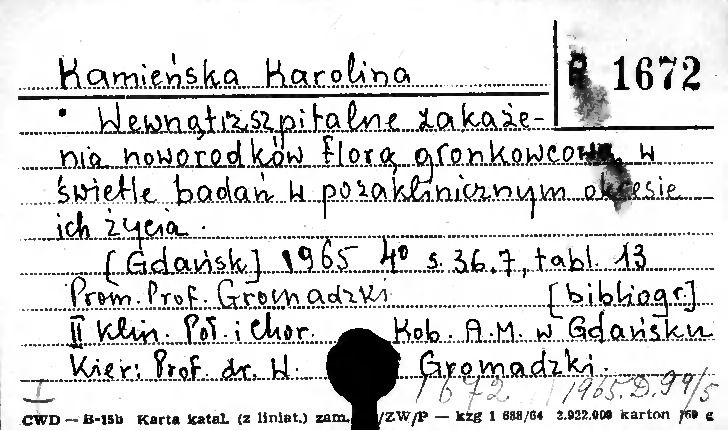 Kamieńska Karolina
R 1672
Wewnątrzszpitalne zakaże-
nia noworodków florą gronkowcową w
świetle badań w pozaklinicznym okresie
ich życia.
[Gdańsk] 1965 4° s. 36.7, tabl. 13
Prom. Prof. Gromadzki [bibliogr.]
II Klin. Poł. i Chor. Kob. A.M. w Gdańsku
Kier: Prof. dr. W. Gromadzki.
I 1672 1965.D.99/5
CWD — B-15b Karta katal. (z liniat.) zam. /ZW/P — kzg 1 688/64 2.922.000 karton 160 g